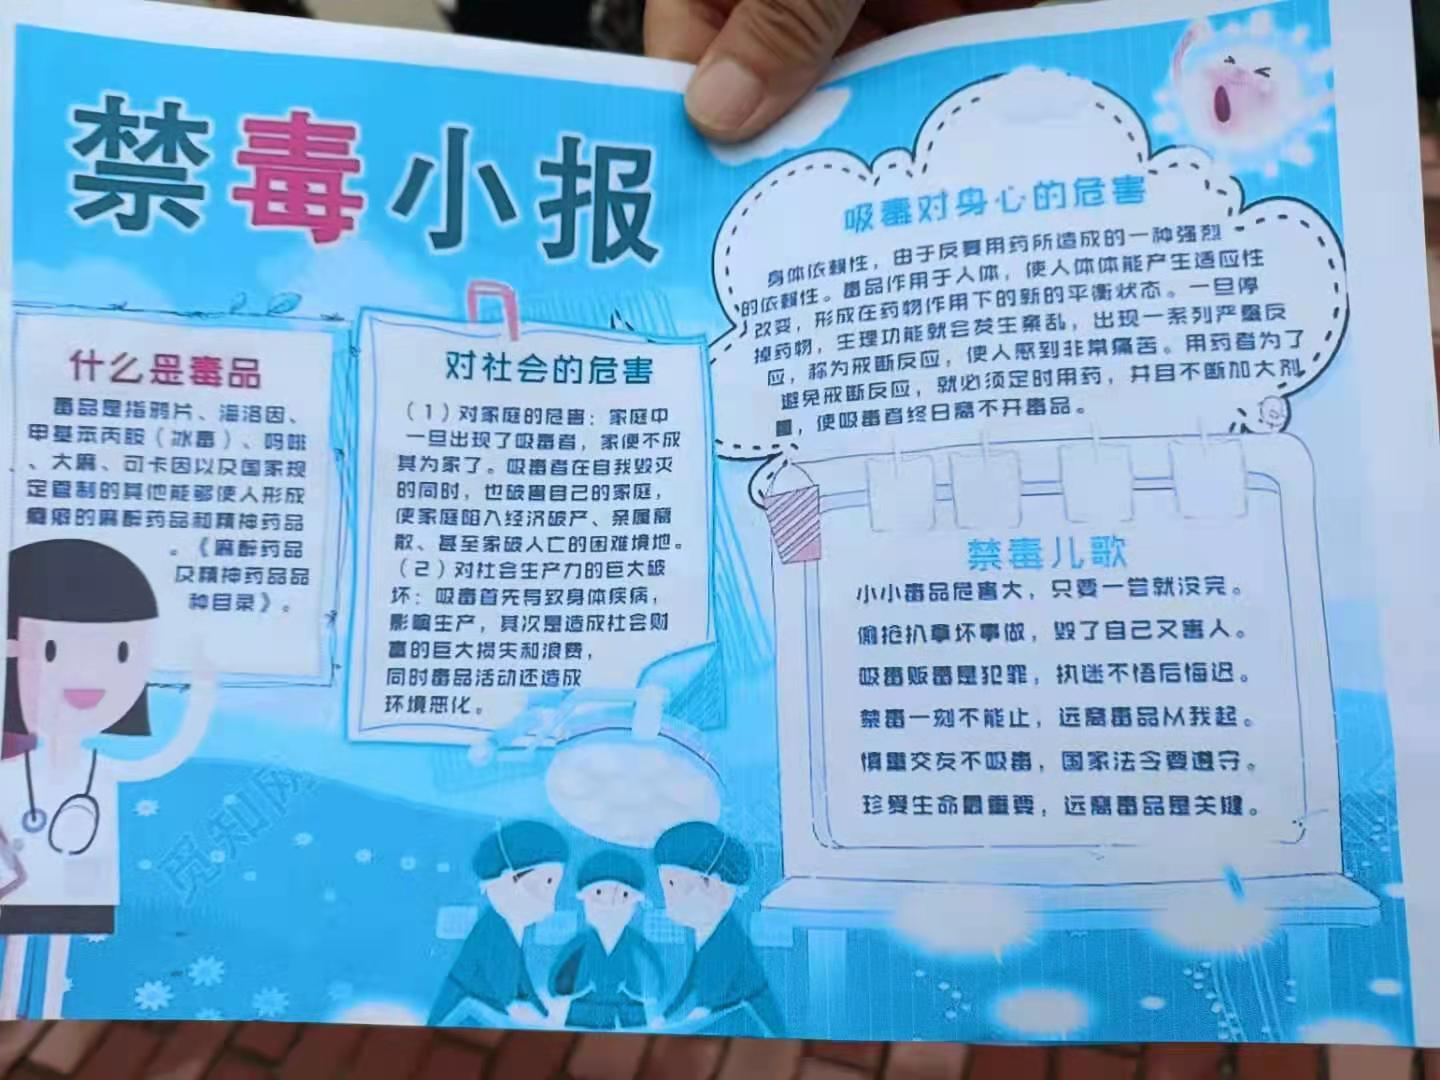 禁毒小报
什么是毒品
毒品是指鸦片、海洛因、
甲基苯丙胺（冰毒）、吗啡
、大麻、可卡因以及国家规
定管制的其他能够使人形成
瘾癖的麻醉药品和精神药品
。《麻醉药品
及精神药品品
种目录》。
对社会的危害
（1）对家庭的危害：家庭中
一旦出现了吸毒者，家便不成
其为家了。吸毒者在自我毁灭
的同时，也破害自己的家庭，
使家庭陷入经济破产、亲属离
散、甚至家破人亡的困难境地。
（2）对社会生产力的巨大破
坏：吸毒首先导致身体疾病，
影响生产，其次是造成社会财
富的巨大损失和浪费，
同时毒品活动还造成
环境恶化。
吸毒对身心的危害
身体依赖性，由于反复用药所造成的一种强烈
的依赖性。毒品作用于人体，使人体体能产生适应性
改变，形成在药物作用下的新的平衡状态。一旦停
掉药物，生理功能就会发生紊乱，出现一系列严重反
应，称为戒断反应，使人感到非常痛苦。用药者为了
避免戒断反应，就必须定时用药，并且不断加大剂
量，使吸毒者终日离不开毒品。
禁毒儿歌
小小毒品危害大，只要一尝就没完。
偷抢扒拿坏事做，毁了自己又害人。
吸毒贩毒是犯罪，执迷不悟后悔迟。
禁毒一刻不能止，远离毒品从我起。
慎重交友不吸毒，国家法令要遵守。
珍爱生命最重要，远离毒品是关键。
觅知网